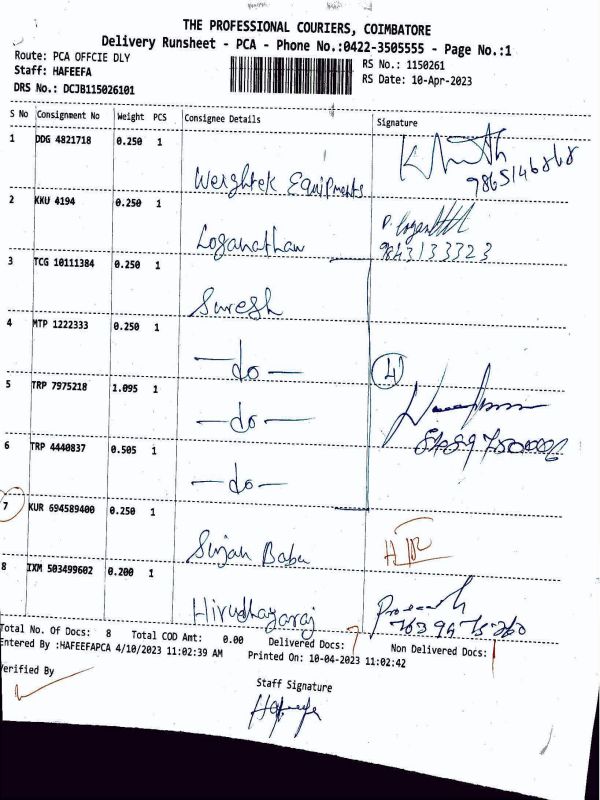 THE PROFESSIONAL COURIERS, COIMBATORE
Delivery Runsheet - PCA - Phone No.:0422-3505555 - Page No.:1
Route: PCA OFFCIE DLY
Staff: HAFEEFA
DRS No.: DCJB115026101
RS No.: 1150261
RS Date: 10-Apr-2023
S No Consignment No Weight PCS Consignee Details Signature
1 DDG 4821718 0.250 1
Weightek Equipments
9865146868
2 KKU 4194 0.250 1
Loganathan
P. Loganathan
9843133323
3 TCG 10111384 0.250 1
Suresh
4 MTP 1222333 0.250 1
-do-
4
5 TRP 7975218 1.095 1
-do-
6 TRP 4440837 0.505 1
-do-
7 KUR 694589400 0.250 1
Sujan Babu
8 IXM 503499602 0.200 1
Hirudhayaraj
Total No. Of Docs: 8 Total COD Amt: 0.00 Delivered Docs: 7 Non Delivered Docs: 1
Entered By :HAFEEFAPCA 4/10/2023 11:02:39 AM Printed On: 10-04-2023 11:02:42
Verified By
Staff Signature
Hafeefa